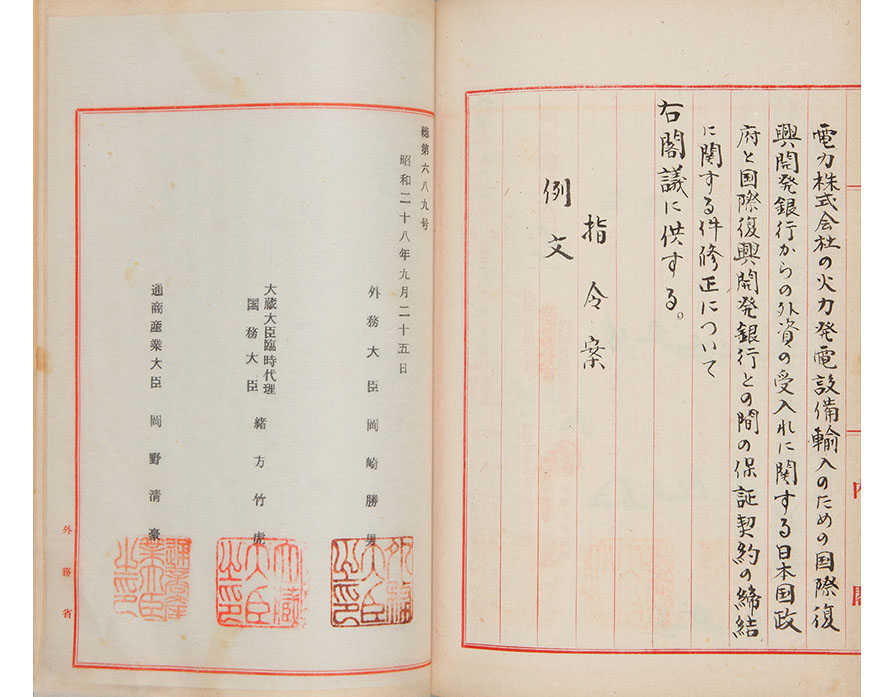 電力株式会社の火力発電設備輸入のための国際復
興開発銀行からの外資の受入れに関する日本国政
府と国際復興開発銀行との間の保証契約の締結
に関する件修正について
右閣議に供する。
指令案
例文
内閣
総第六八九号
昭和二十八年九月二十五日
外務大臣 岡崎勝男
大蔵大臣臨時代理
国務大臣 緒方竹虎
通商産業大臣 岡野清豪
外務大臣之印
大蔵大臣之印
通商産業大臣之印
外務省